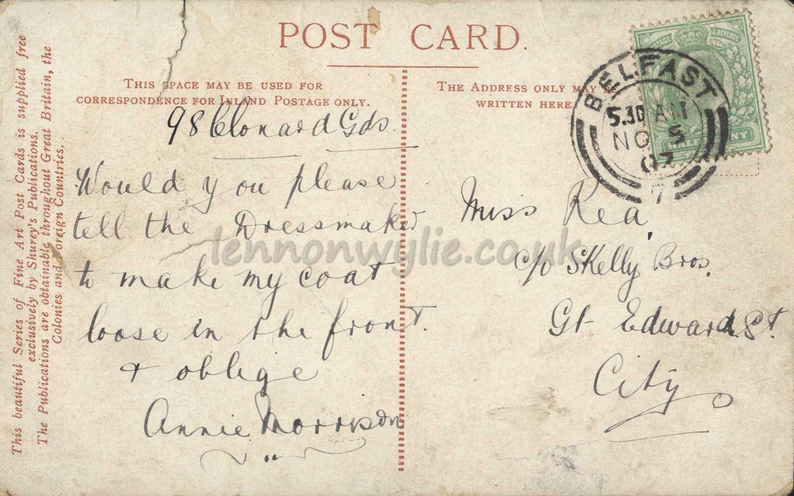 POST CARD.
THIS SPACE MAY BE USED FOR
CORRESPONDENCE FOR INLAND POSTAGE ONLY.
THE ADDRESS ONLY MAY
WRITTEN HERE
This beautiful Series of Fine Art Post Cards is supplied free
exclusively by Shurey's Publications.
The Publications are obtainable throughout Great Britain, the
Colonies and Foreign Countries.
98 Clonard Gds.
Would you please
tell the Dressmaker
to make my coat
loose in the front.
& oblige
Annie Morrison
Miss Rea,
c/o Skelly Bros.
Gt. Edward St.
City
BELFAST
5.30 AM
NO 5
07
7
lennonwylie.co.uk